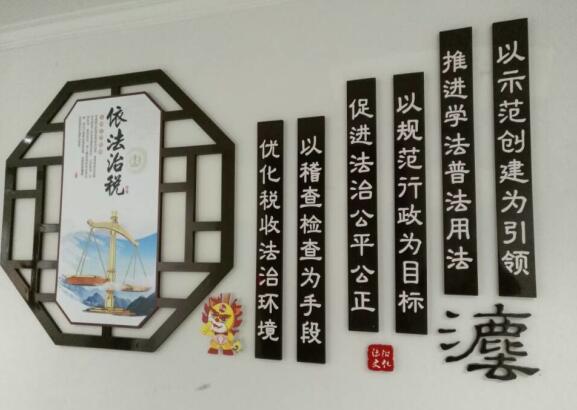 以示范创建为引领
推进学法普法用法
以规范行政为目标
促进法治公平公正
以稽查检查为手段
优化税收法治环境
依法治税
灋
文化